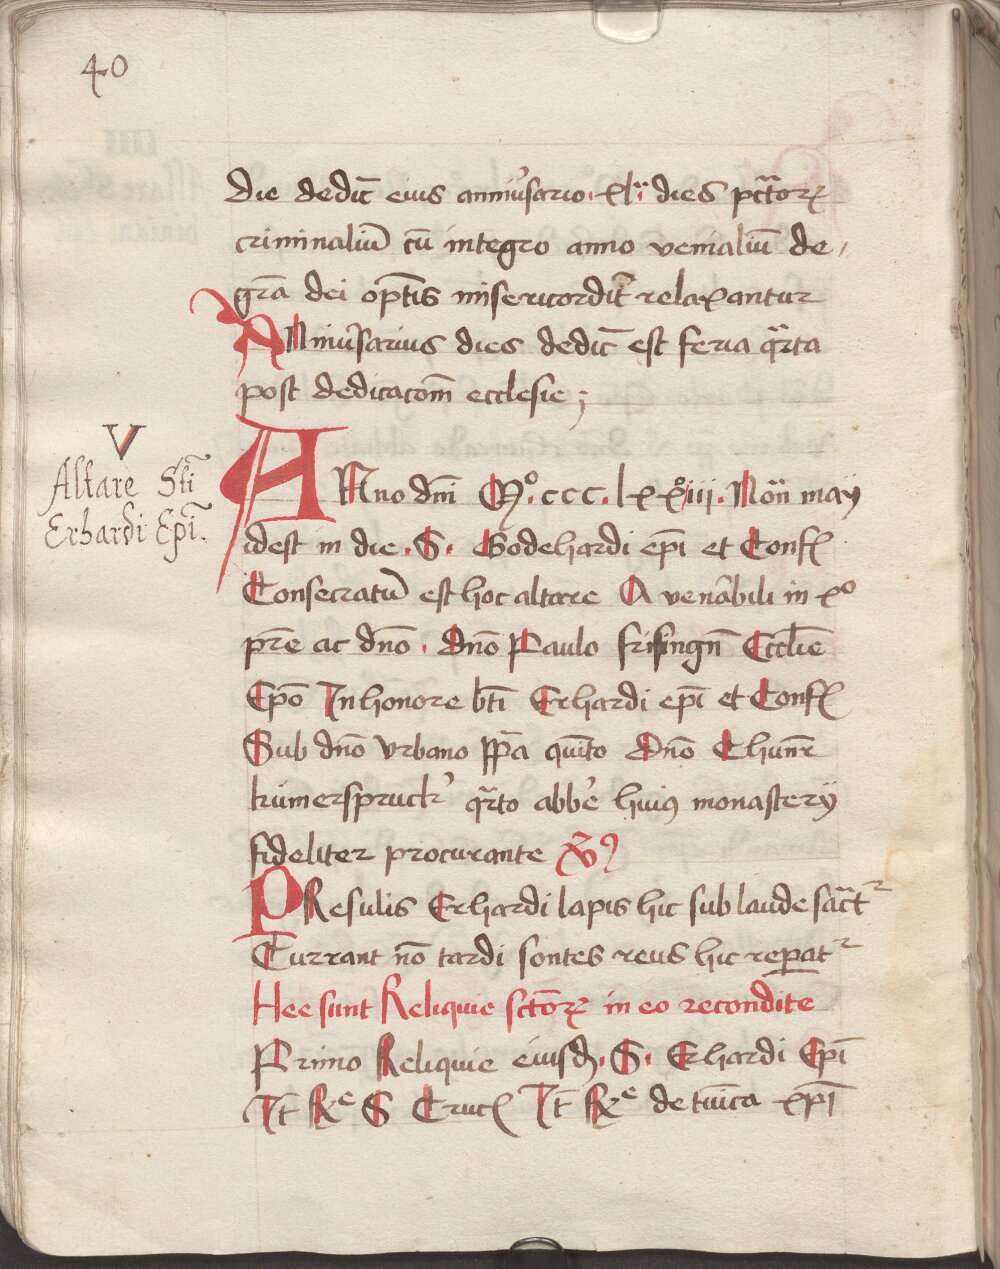 40
die dedic̄ eius anniu᾽sario · xl · dies pctōrꝝ
criminaliū cū integro anno venialiū de
grā dei op̄tis misericordit̄ relaxantur
ANniu᾽sarius dies dedic̄ est feria qrta
post dedicacōm̄ ecclesie ;
V
Altare Sti̅
Erhardi Epī.
ANno dm̄ Mº · ccc · lxxºiii · Non̄ maij
idest in die · S · Godehardi ep̄i et Confeſ
Consecratū est hoc altare A venābili in xº
pr̄e ac dn̄o · Dn̄o Paulo frisingn̄ Eccl̄ie
Ep̄o In honore bt̄i Erhardi ep̄i et Confeſ
Sub dn̄o Vrbano pp̄a quīto Dn̄o Chunr̄
kūmerspruck᾽ qrto abb̄e huiꝰ monasterij
fideliter procurante
PResulis Erhardi lapis hic sub laude sact̄
Currant nō tardi sontes reus hic repat
Hee sunt Reliquie sctōrꝝ in eo recondite
Primo Reliquie eiusd᾽ · S · Erhardi Ep̄i
It̄ Rẽ S Crucꝭ It̄ Rẽ de tuīca xp̄i